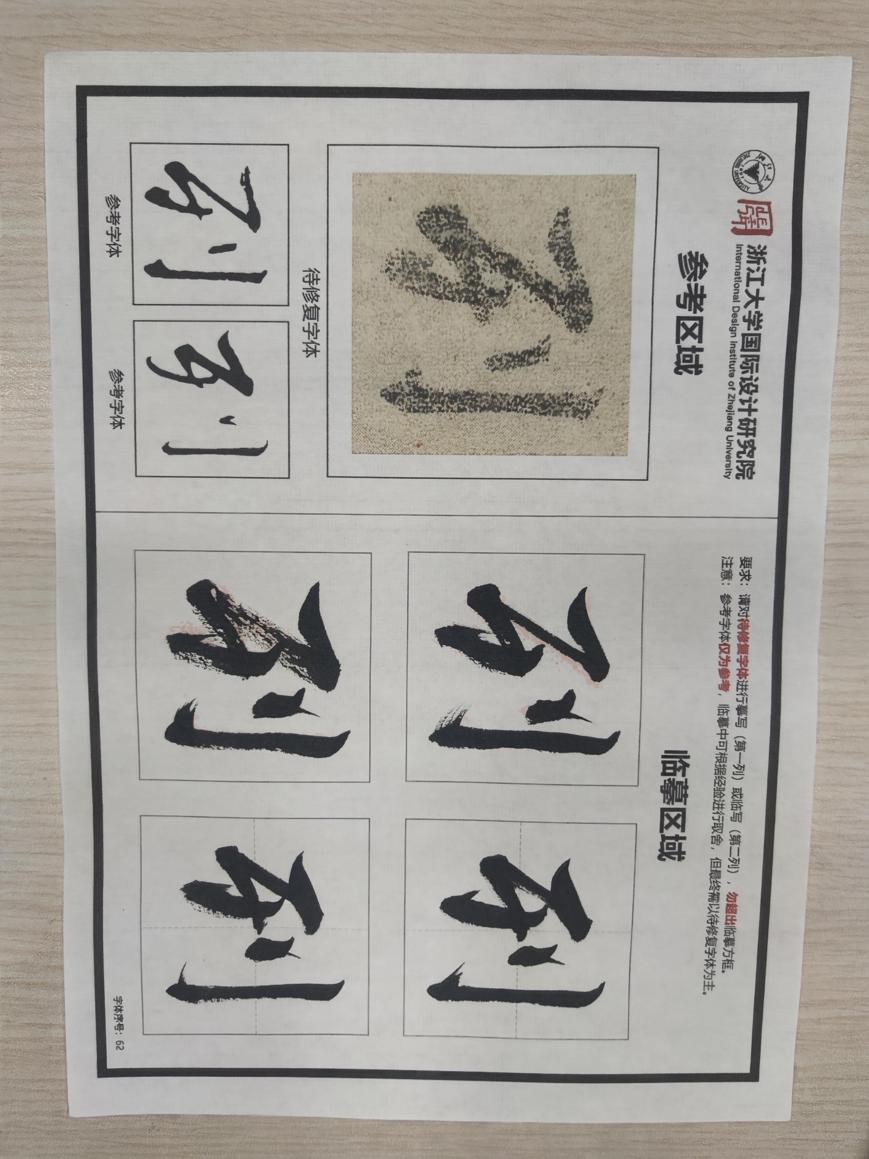 浙江大学国际设计研究院
International Design Institute of Zhejiang University
参考区域
列
待修复字体
列
列
参考字体
参考字体
要求：请对待修复字体进行摹写（第一列）或临写（第二列），勿超出临摹方框。
注意：参考字体仅为参考，临摹中可根据经验进行取舍，但最终需以待修复字体为主。
临摹区域
列
列
列
列
字体序号：62